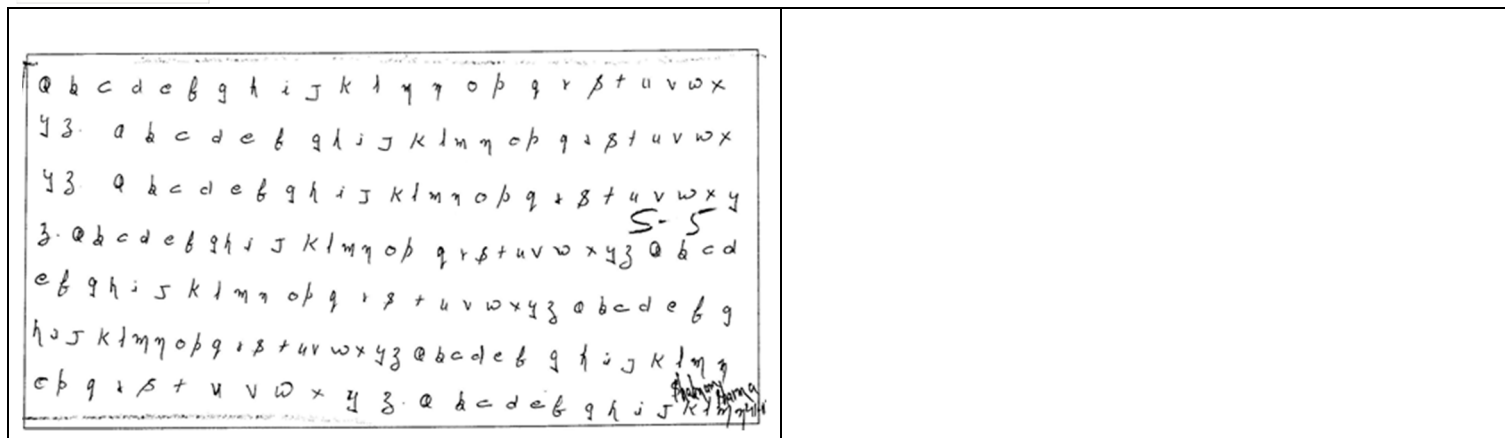 a b c d e f g h i J k l m n o p q r s t u v w x
y z. a b c d e f g h i J k l m n o p q r s t u v w x
y z. a b c d e f g h i J k l m n o p q r s t u v w x y
S- 5
z. a b c d e f g h i J k l m n o p q r s t u v w x y z a b c d
e f g h i J k l m n o p q r s t u v w x y z a b c d e f g
h i J k l m n o p q r s t u v w x y z a b c d e f g h i J k l m n
o p q r s t u v w x y z. a b c d e f g h i J k l m n